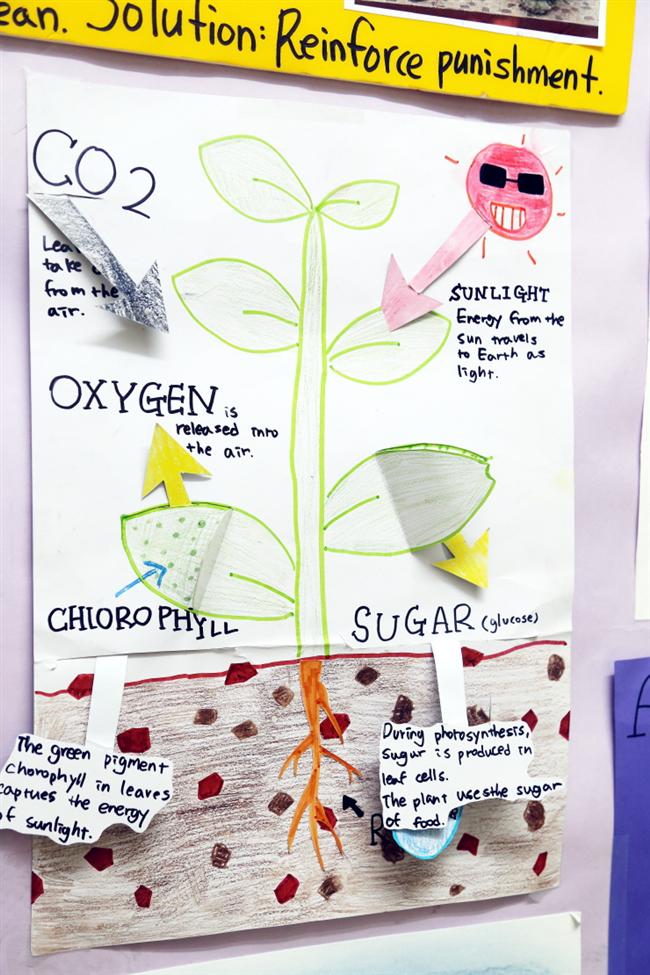 Solution: Reinforce punishment.
CO2
take
from the
air.
SUNLIGHT
Energy from the
sun travels
to Earth as
light.
OXYGEN is
released into
the air.
CHLOROPHYLL
SUGAR (glucose)
The green pigment
chorophyll in leaves
captues the energy
of sunlight.
During photosynthesis,
sugar is produced in
leaf cells.
The plant uses the sugar
of food.